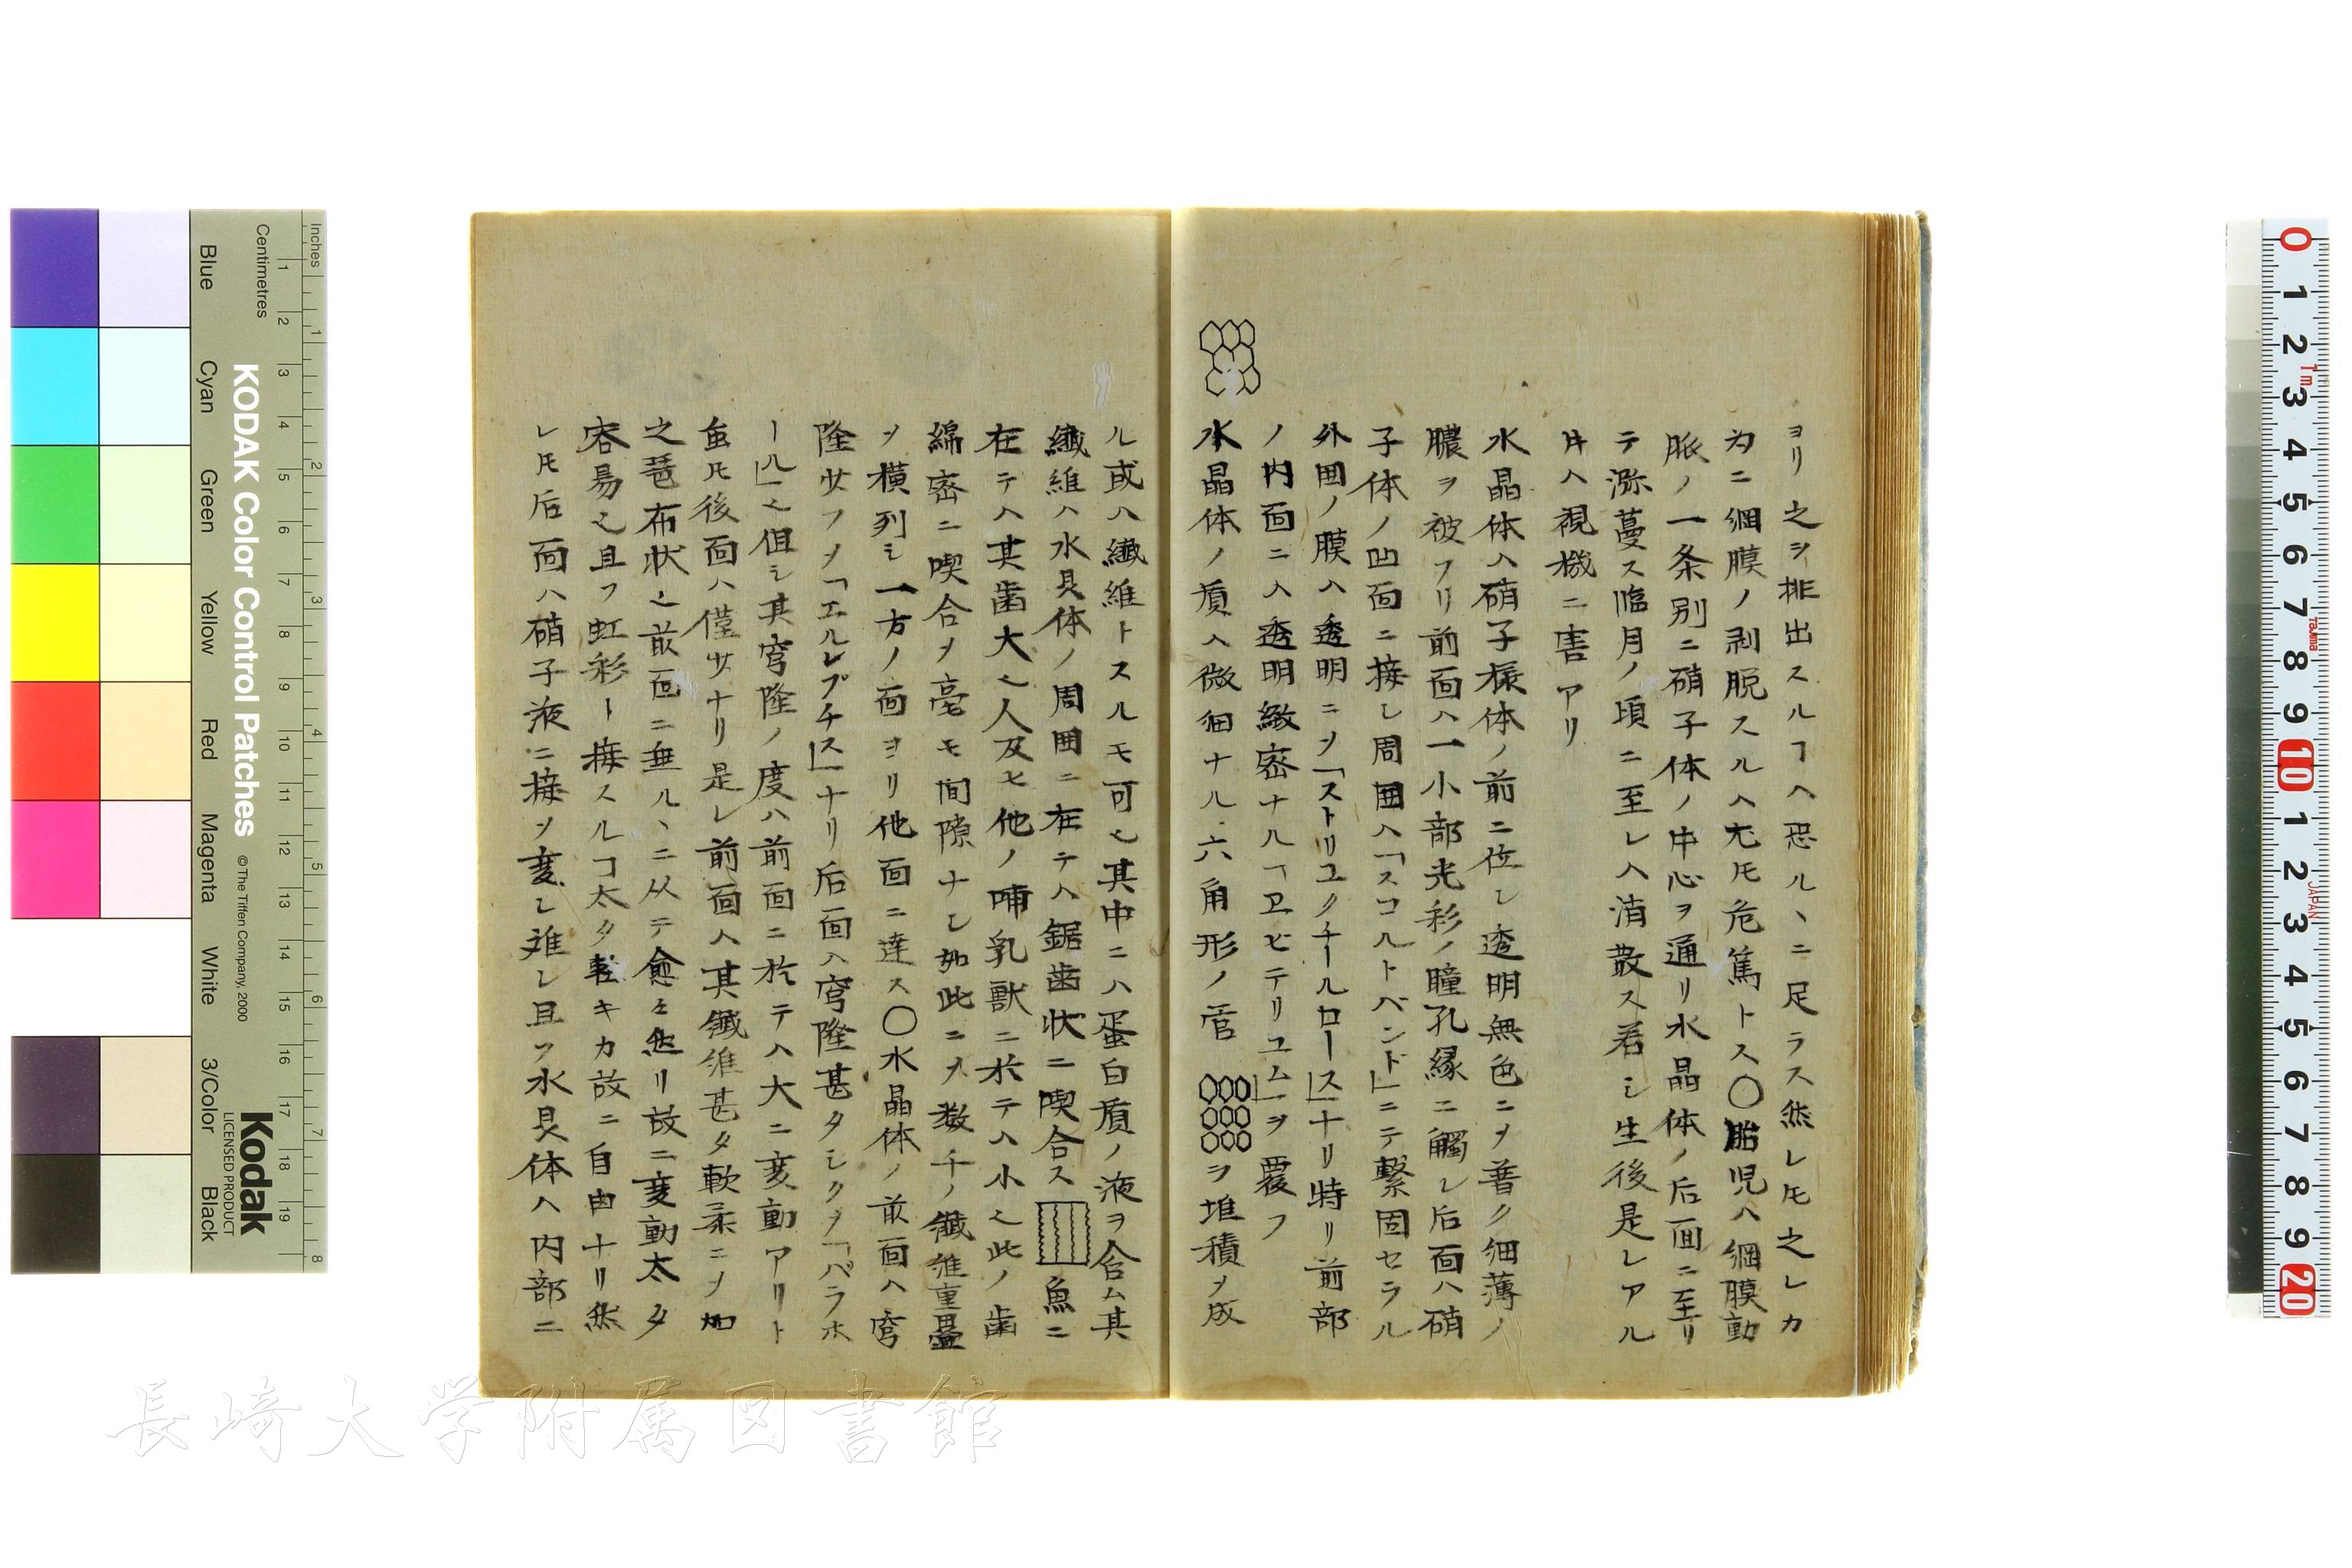 ヨリ之ヲ排出スルヿハ恐ルヽニ足ラス然レ𪜈之レカ
為ニ網膜ノ剥脱スルハ尤𪜈危篤トス〇胎児ハ網膜動
脈ノ一条別ニ硝子体ノ中心ヲ通リ水晶体ノ后面ニ至リ
テ㳽蔓ス臨月ノ頃ニ至レハ消散ス若シ生後是レアル
𪜈ハ視機ニ害アリ
水晶体ハ硝子様体ノ前ニ位シ透明無色ニヲ普ク細薄ノ
膿ヲ被フリ前面ハ一小部光彩ノ瞳孔縁ニ觸レ后面ハ硝
子体ノ凹面ニ接シ周囲ハ「スコルトバンド」ニテ繋固セラル
外囲ノ膜ハ透明ニヲ「ストリユクチールロース」ナリ特リ前部
ノ内面ニハ透明緻密ナル「ヱピテリユム」ヲ覆フ
水晶体ノ質ハ微細ナル六角形ノ管ヲ堆積ヲ成
ル或ハ纎維トスルモ可也其中ニハ蛋白質ノ液ヲ含ム其
纎維ハ水晶体ノ周囲ニ在テハ鋸歯状ニ喫合ス魚ニ
在テハ其歯大也人及ヒ他ノ哺乳獣ニ於テハ小也此ノ歯
綿密ニ喫合ヲ毫モ間隙ナシ如此ニヲ数千ノ纎維重畳
ヲ横列シ一方ノ面ヨリ他面ニ達ス〇水晶体ノ前面ハ穹
隆サフヲ「エルレプチス」ナリ后面ハ穹隆甚タシクヲ「バラホ
ール」也但シ其穹隆ノ度ハ前面ニ於テハ大ニ変動アリト
虽𪜈後面ハ僅サナリ是レ前面ハ其纎維甚タ軟柔ニヲ加
之琶布状也前面ニ垂ルヽニ从テ愈々然リ故ニ変動太タ
容易也且フ虹彩ト接スルコ太タ軽キカ故ニ自由ナリ然
レ𪜈后面ハ硝子液ニ接ヲ変シ難シ且ツ水晶体ハ内部ニ
Inches
Centimetres
KODAK Color Control Patches
© The Tiffen Company, 2000
Kodak
LICENSED PRODUCT
Blue
Cyan
Green
Yellow
Red
Magenta
White
3/Color
Black
長崎大学附属図書館